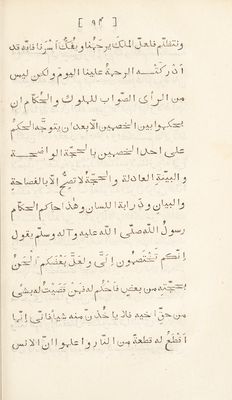 [ ٩٤ ]
ونتظلّم فلعلّ الملك يرحمنا ويفكّ أسرنا فانّه قد
ادركتْه الرحمة علينا اليوم ولكن ليس
من الرأى الصواب للملوك والحكّام ان
يحكموا بين الخصمين الّا بعد ان يتوجّه الحكم
على احد الخصمين بالحجّة الواضحة
والبيّنة العادلة والحجّة لا تصحّ الّا بالفصاحة
والبيان وذرابة اللسان وهذا حاكم الحكّام
رسول الله صلّى الله عليه وآله وسلّم يقول
انّكم تختصمون إلىّ ولعلّ بعضكم ألحن
بحجّته من بعض فاحكم له فمن قضيتُ له بشىء
من حقّ اخيه فلا ياخذنّ منه شيأ فانّى إنّما
أقطع له قطعة من النار واعلموا انّ الانس